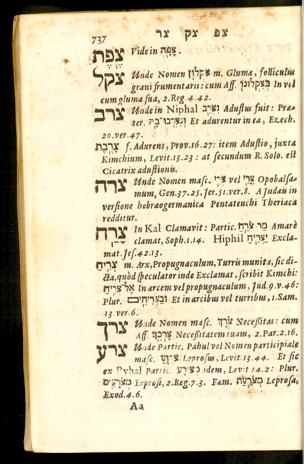 737 צפ צק צר
צפת Vide in צפה.
צקל Unde Nomen צקלון m. Gluma, folliculus
grani frumentarii: cum Aff. בצקלונו In vel
cum gluma sua, 2.Reg.4.42.
צרב Unde in Niphal נצרב Adustus fuit: Præ-
ter. ונצרבו בה Et adurentur in ea, Ezech.
20.ver.47.
צרבת f. Adurens, Prov.16.27: item Adustio, juxta
Kimchium, Levit.13.23: at secundum R. Solo. est
Cicatrix adustionis.
Unde Nomen masc. צרי vel צרי Opobalsa-
mum, Gen.37.25, Jer.51.ver.8. A Judæis in
versione hebræogermanica Pentateuchi Theriaca
redditur.
צרח In Kal Clamavit: Partic. צרח מר Amarè
clamat, Soph.1.14. Hiphil יצריח Excla-
mat. Jes.42.13.
צריח m. Arx, Propugnaculum, Turris munita, sic di-
cta, quòd speculator inde Exclamat, scribit Kimchi:
אל צריח In arcem vel propugnaculum, Jud.9.v.46:
Plur. ובצריחים Et in arcibus vel turribus, 1.Sam.
13 ver.6.
צרך Unde Nomen masc. צרך Necessitas: cum
Aff. צרכך Necessitatem tuam, 2.Par.2.16.
צרע Unde Partic. Pahul vel Nomen participiale
masc. צרוע Leprosus, Levit.13.44. Et sic
ex Pyhal Partic. מצרע idem, Levit 14.2: Plur.
מצרעים Leprosi, 2.Reg.7.3. Fæm. מצרעת Leprosa,
Exod.4.6.
Aa